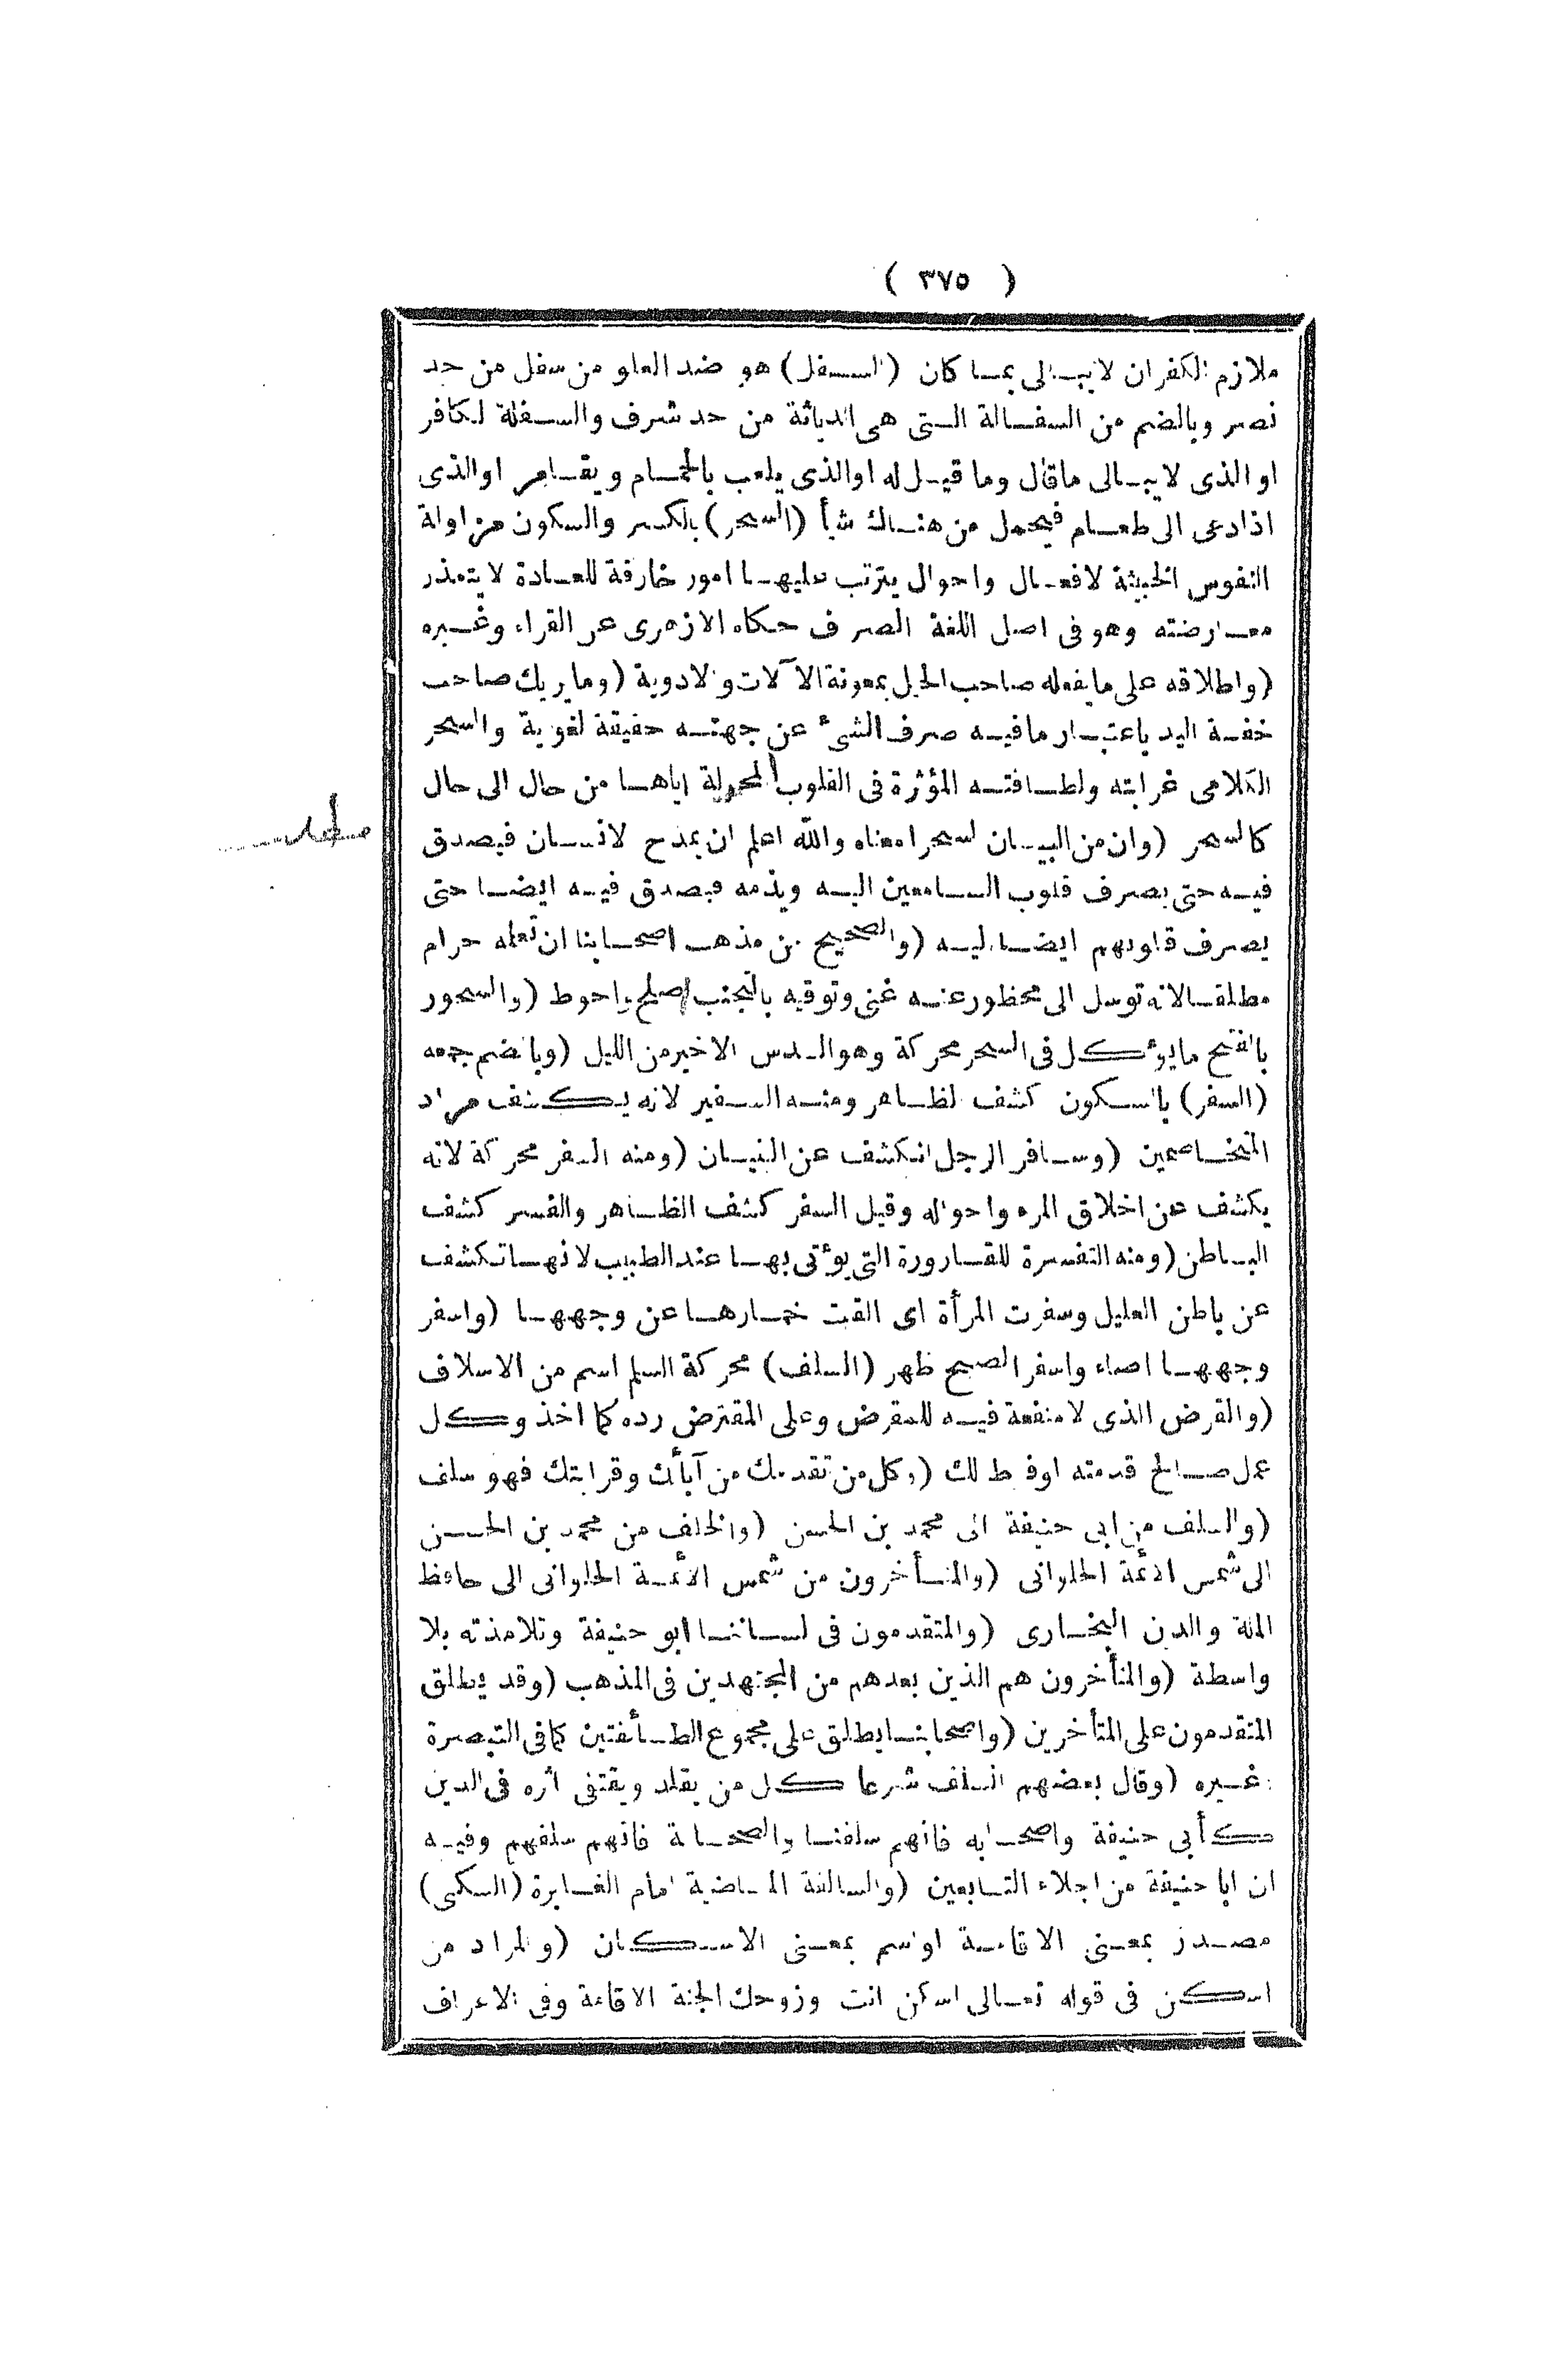 ( ٣٧٥ )
ملازم الكفران لايبالى بما كان (السفل) هو ضد العلو من سفل من حد
نصر وبالضم من السفالة التى هى الدناثة من حد شرف والسفلة الكافر
او الذى لايبالى ماقال وما قيل له اوالذى يلعب بالحمام ويقامر اوالذى
اذادعى الى طعام فيحمل من هناك شأ (السحر) بالكسر والسكون مزاولة
النفوس الخبيثة لافعال واحوال يترتب عليها امور خارقة للعادة لايتعذر
معارضته وهو فى اصل اللغة الصرف حكاه الازهرى عن الفراء وغيره
(واطلاقه على مايفعله صاحب الحيل بمعونة الآلات والادوية (ومايريك صاحب
خفة اليد باعتبار مافيه صرف الشىء عن جهته حقيقة لغوية والسحر
الكلامى غرابته ولطافته المؤثرة فى القلوب المحولة اياها من حال الى حال
كالسحر (وان من البيان لسحرا معناه والله اعلم ان يمدح الانسان فيصدق
فيه حتى يصرف قلوب السامعين اليه ويذمه فيصدق فيه ايضا حتى
يصرف قلوبهم ايضا اليه (والصحيح من مذهب اصحابنا ان تعلمه حرام
مطلقا لانه توسل الى محظور عنه غنى وتوقيه بالتجنب اصلح واحوط (والسحور
بالفتح مايؤكل فى السحر محركة وهو السدس الاخير من الليل (وبالضم جمعه
(السفر) بالسكون كشف الظاهر ومنه السفير لانه يكشف مراد
المتخاصمين (وسافر الرجل انكشف عن البنيان (ومنه السفر محركة لانه
يكشف عن اخلاق المره واحواله وقيل السفر كشف الظاهر والفسر كشف
الباطن (ومنه التفسرة للقارورة التى يؤتى بها عند الطبيب لانها تكشف
عن باطن العليل وسفرت المرأة اى القت خمارها عن وجهها (واسفر
وجهها اضاء واسفر الصبح ظهر (السلف) محركة السلم اسم من الاسلاف
(والقرض الذى لامنفعة فيه للمقرض وعلى المقترض رده كما اخذ وكل
عمل صالح قدمته اوفرط لك (وكل من تقدمك من آبائك وقرابتك فهو سلف
(والسلف من ابى حنيفة الى محمد بن الحسن (والخلف من محمد بن الحسن
الى شمس الائمة الحلوانى (والمتأخرون من شمس الائمة الحلوانى الى حافظ
الملة والدين البخارى (والمتقدمون فى لساننا ابو حنيفة وتلامذته بلا
واسطة (والمتأخرون هم الذين بعدهم من المجتهدين فى المذهب (وقد يطلق
المتقدمون على المتأخرين (واصحابنا يطلق على مجموع الطائفتين كمافى التبصرة
وغيره (وقال بعضهم السلف شرعا كل من يقلد ويقتفى اثره فى الدين
كأبى حنيفة واصحابه فانهم سلفنا والصحابة فانهم سلفهم وفيه
ان ابا حنيفة من اجلاء التابعين (والسالفة الماضية امام الغابرة (السكنى)
مصدر بمعنى الاقامة او اسم بمعنى الاسكان (والمراد من
اسكن فى قوله تعالى اسكن انت وزوجك الجنة الاقامة وفى الاعراف